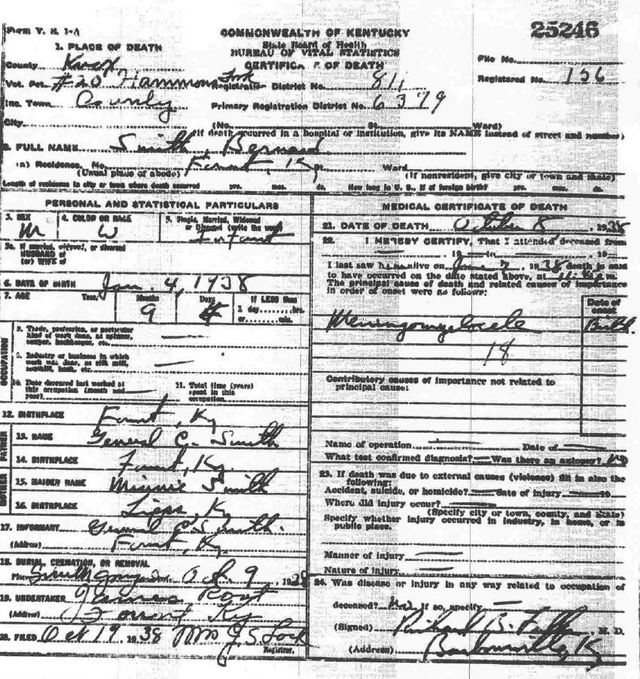 Form V. S. 1-A
COMMONWEALTH OF KENTUCKY
25246
State Board of Health
BUREAU OF VITAL STATISTICS
CERTIFICATE OF DEATH
1. PLACE OF DEATH
County Knox
File No.
Vot. Pct. #20 Hammons Fork
Registration District No. 811
Registered No. 156
Inc. Town County
Primary Registration District No. 6379
City (No. St. Ward)
(If death occurred in a hospital or institution, give its NAME instead of street and number)
2. FULL NAME Smith, Bernard
(a) Residence. No. Fount, Ky. Ward
(Usual place of abode) (If nonresident, give city or town and State)
Length of residence in city or town where death occurred yrs. mos. ds. How long in U. S., if of foreign birth? yrs. mos. ds.
PERSONAL AND STATISTICAL PARTICULARS
3. SEX M
4. COLOR OR RACE W
5. Single, Married, Widowed or Divorced (write the word) Infant
5a. If married, widowed, or divorced
HUSBAND of
(or) WIFE of
6. DATE OF BIRTH Jan. 4, 1938
7. AGE Years Months 9 Days 4 If LESS than 1 day hrs. or min.
OCCUPATION
8. Trade, profession, or particular kind of work done, as spinner, sawyer, bookkeeper, etc.
9. Industry or business in which work was done, as silk mill, sawmill, bank, etc.
10. Date deceased last worked at this occupation (month and year)
11. Total time (years) spent in this occupation
12. BIRTHPLACE Fount, Ky
FATHER
13. NAME General C. Smith
14. BIRTHPLACE Fount, Ky.
MOTHER
15. MAIDEN NAME Minnie Smith
16. BIRTHPLACE Ky
17. INFORMANT General C. Smith.
(Address) Fount, Ky.
18. BURIAL, CREMATION, OR REMOVAL
Place Date Oct 9, 1938
19. UNDERTAKER James
(Address) Fount Ky
20. FILED Oct 19, 1938 Mrs
Registrar.
MEDICAL CERTIFICATE OF DEATH
21. DATE OF DEATH October 8, 1938
22. I HEREBY CERTIFY, That I attended deceased from
19 to 19
I last saw h alive on 1938 death is said
to have occurred on the date stated above, at m.
The principal cause of death and related causes of importance
in order of onset were as follows:
Date of onset
Meningomyelocele Birth
18
Contributory causes of importance not related to
principal cause:
Name of operation Date of
What test confirmed diagnosis? Was there an autopsy? No
23. If death was due to external causes (violence) fill in also the
following:
Accident, suicide, or homicide? date of injury 19
Where did injury occur?
(Specify city or town, county, and State)
Specify whether injury occurred in industry, in home, or in
public place.
Manner of injury
Nature of injury
24. Was disease or injury in any way related to occupation of
deceased? No If so, specify
(Signed) Richard B. M. D.
(Address) Barbourville, Ky